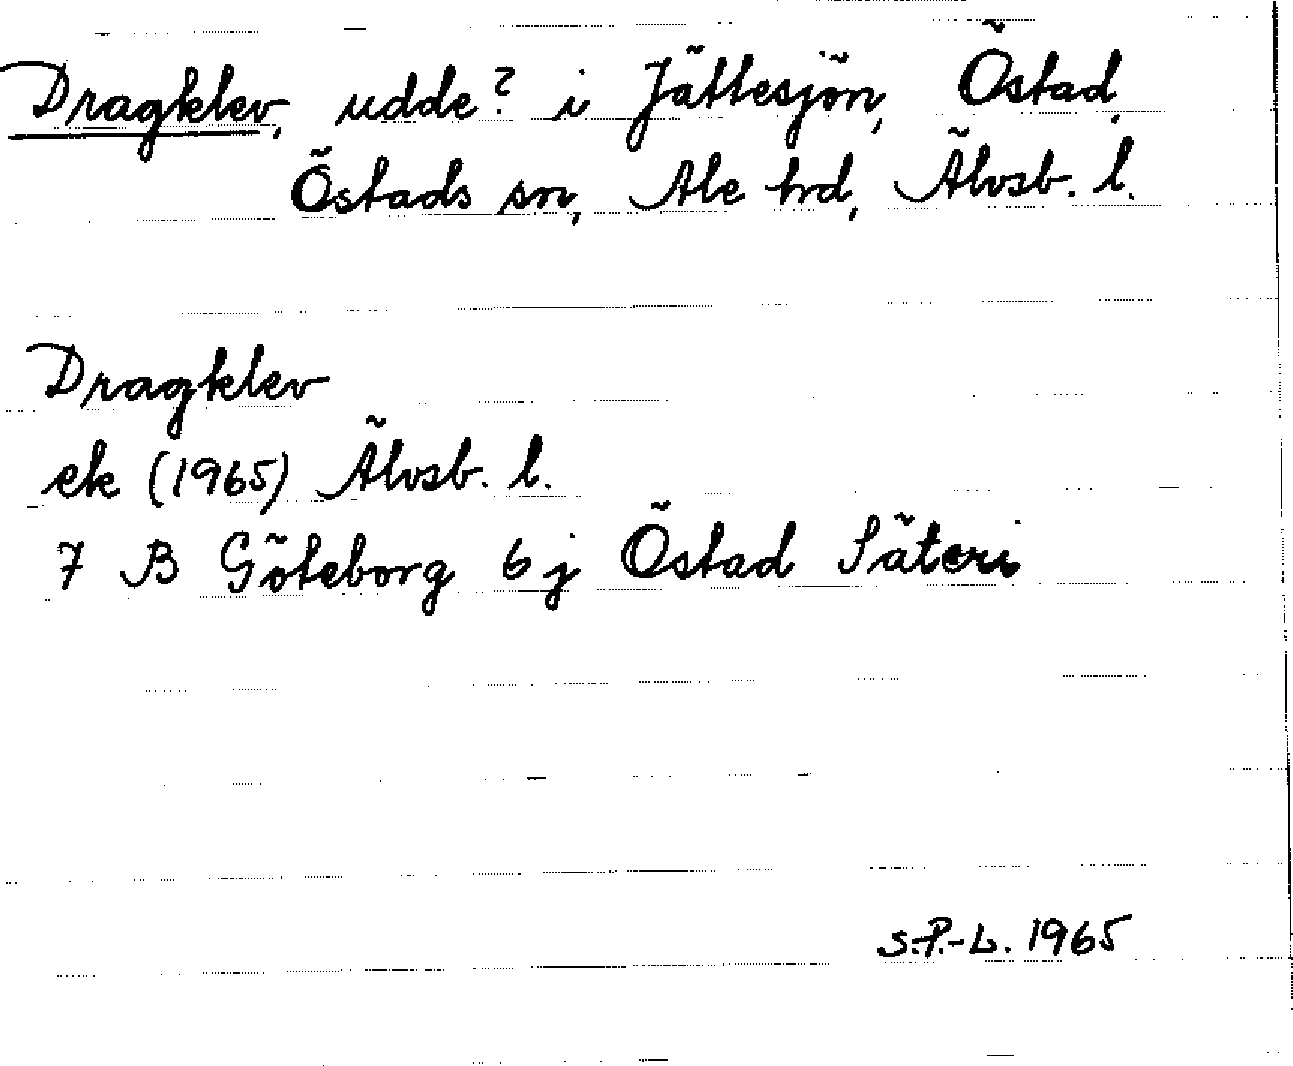 Dragklev, udde? i Jättesjön, Östad,
Östads sn, Ale hrd, Älvsb. l.
Dragklev
ek (1965) Älvsb. l.
7 B Göteborg 6 j Östad Säteri
S.P.-L. 1965